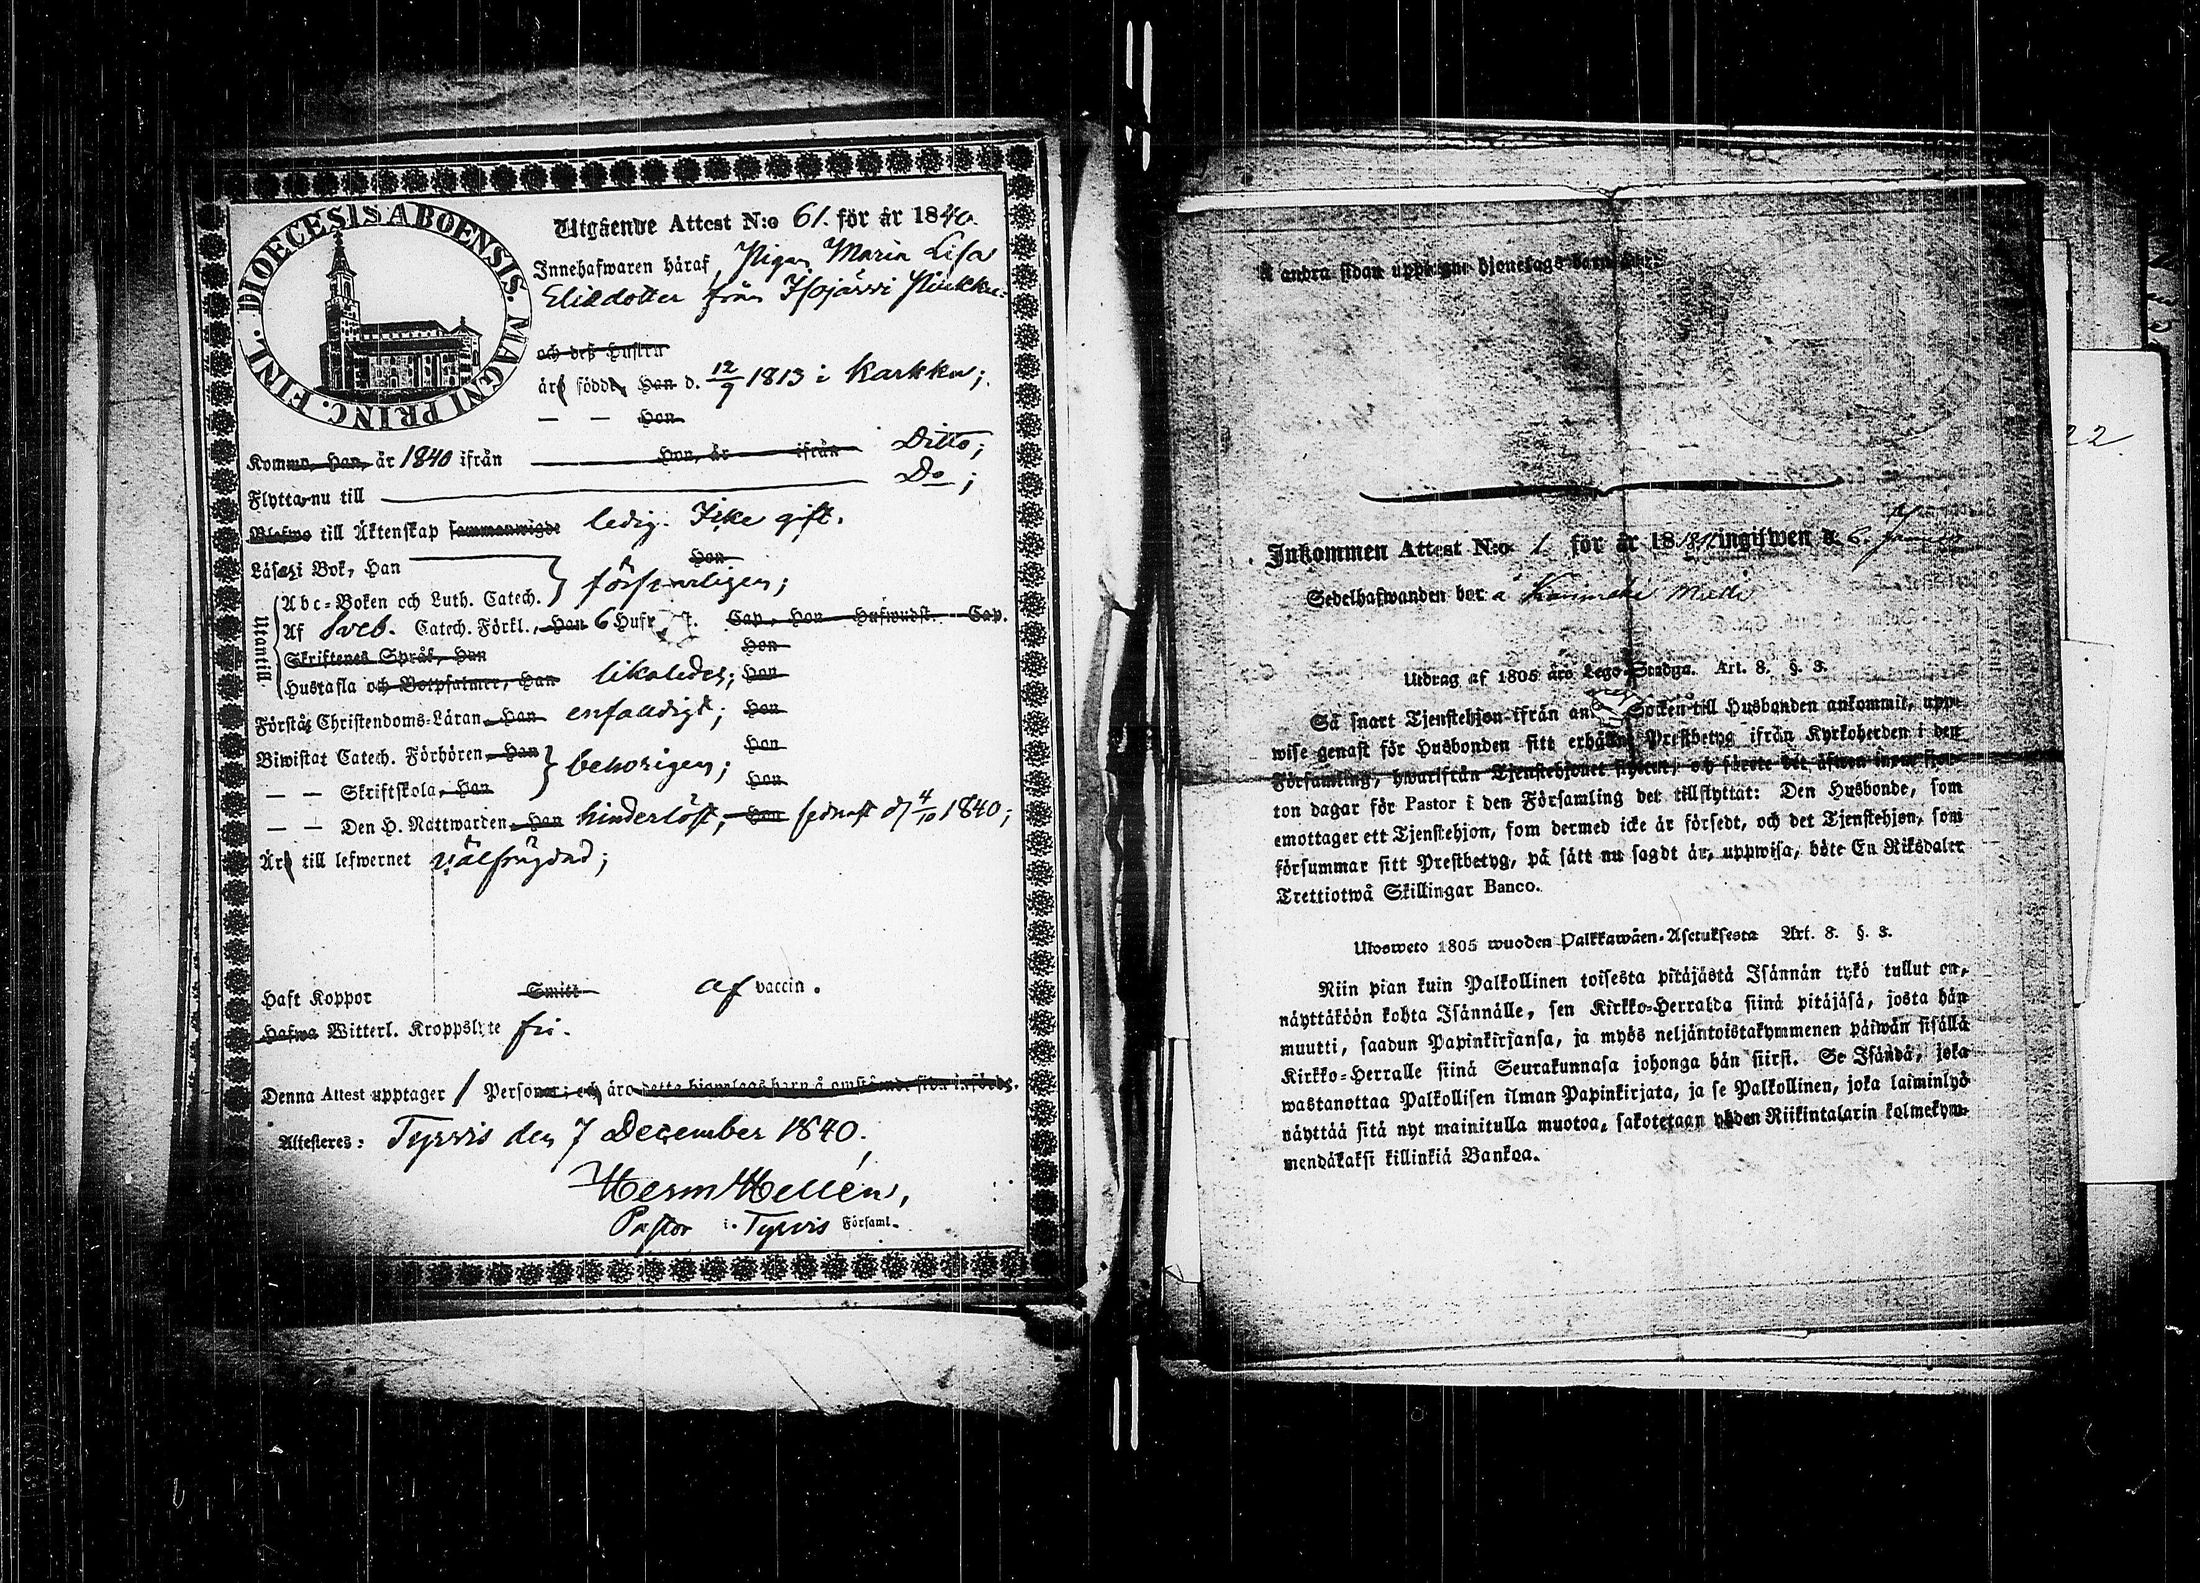 DIOECESIS ABOENSIS. MAGNI PRINC. FINL.
Utgående Attest N:o 61. för år 1840.
Innehafwaren häraf, Pigan Maria Lisa
Eliædotter från Isojärvi
och deß Hustru
äro födde, Han d. 12/9 1813 i Karkku;
— — Hon
Komma, Han, år 1840 ifrån Hon, år ifrån Ditto;
Flytta nu till Do;
Blefwo till Äktenskap sammanwigde ledig. Icke gift.
Läsa i Bok, Han Hon
Utantill
Abc-Boken och Luth. Catech. försvarligen;
Af Sveb. Catech. Förkl., Han 6 Cap., Hon Hufwudst. Cap.
Skriftenes Språk, Han Hon
Hustafla och Botpsalmer, Han likaledes; Hon
Förstå Christendoms-Läran Han enfaldigt; Hon
Biwistat Catech. Förhören Han Hon
— — Skriftskola, Han behörigen; Hon
— — Den H. Nattwarden Han hinderlöst; Hon sednast d 4/10 1840;
Äro till lefwernet välfrägdad;
Haft Koppor Smitt af vaccin.
Hafwa Witterl. Kroppslyte fri.
Denna Attest upptager 1 Personer; och äro detta hjonelags barn å omstående sida införde.
Attesteres: Tyrvis den 7 December 1840.
Herm Hellén,
Pastor i Tyrvis Församl.
Å andra sidan upptagne hjonelags barn äro:
22
Inkommen Attest N:o 1. för år 1841 ingifwen d. 6. Januari
Sedelhafwanden bor å
Utdrag af 1805 års Lego-Stadga. Art. 8. §. 3.
Så snart Tjenstehjon ifrån Socken till Husbonden ankommit, upp-
wise genast för Husbonden sitt erhållne Prestbetyg ifrån Kyrkoherden i den
Församling, hwarifrån Tjenstehjonet flyttat, och
ton dagar för Pastor i den Församling det tillflyttat: Den Husbonde, som
emottager ett Tjenstehjon, som dermed icke är försedt, och det Tjenstehjon, som
försummar sitt Prestbetyg, på sätt nu sagdt är, uppwisa, böte En Riksdaler
Trettiotwå Skillingar Banco.
Ulosweto 1805 wuoden Palkkawäen-Asetuksesta Art. 8. §. 3.
Niin pian kuin Palkollinen toisesta pitäjästä Isännän tykö tullut on,
näyttäköön kohta Isännälle, sen Kirkko-Herralda siinä pitäjäsä, josta hän
muutti, saadun Papinkirjansa, ja myös neljäntoistakymmenen päiwän sisällä
Kirkko-Herralle siinä Seurakunnasa johonga hän siirsi. Se Isändä, joka
wastanottaa Palkollisen ilman Papinkirjata, ja se Palkollinen, joka laiminlyö
näyttää sitä nyt mainitulla muotoa, sakotetaan yhden Riikintalarin kolmekym-
mendäkaksi killinkiä Bankoa.